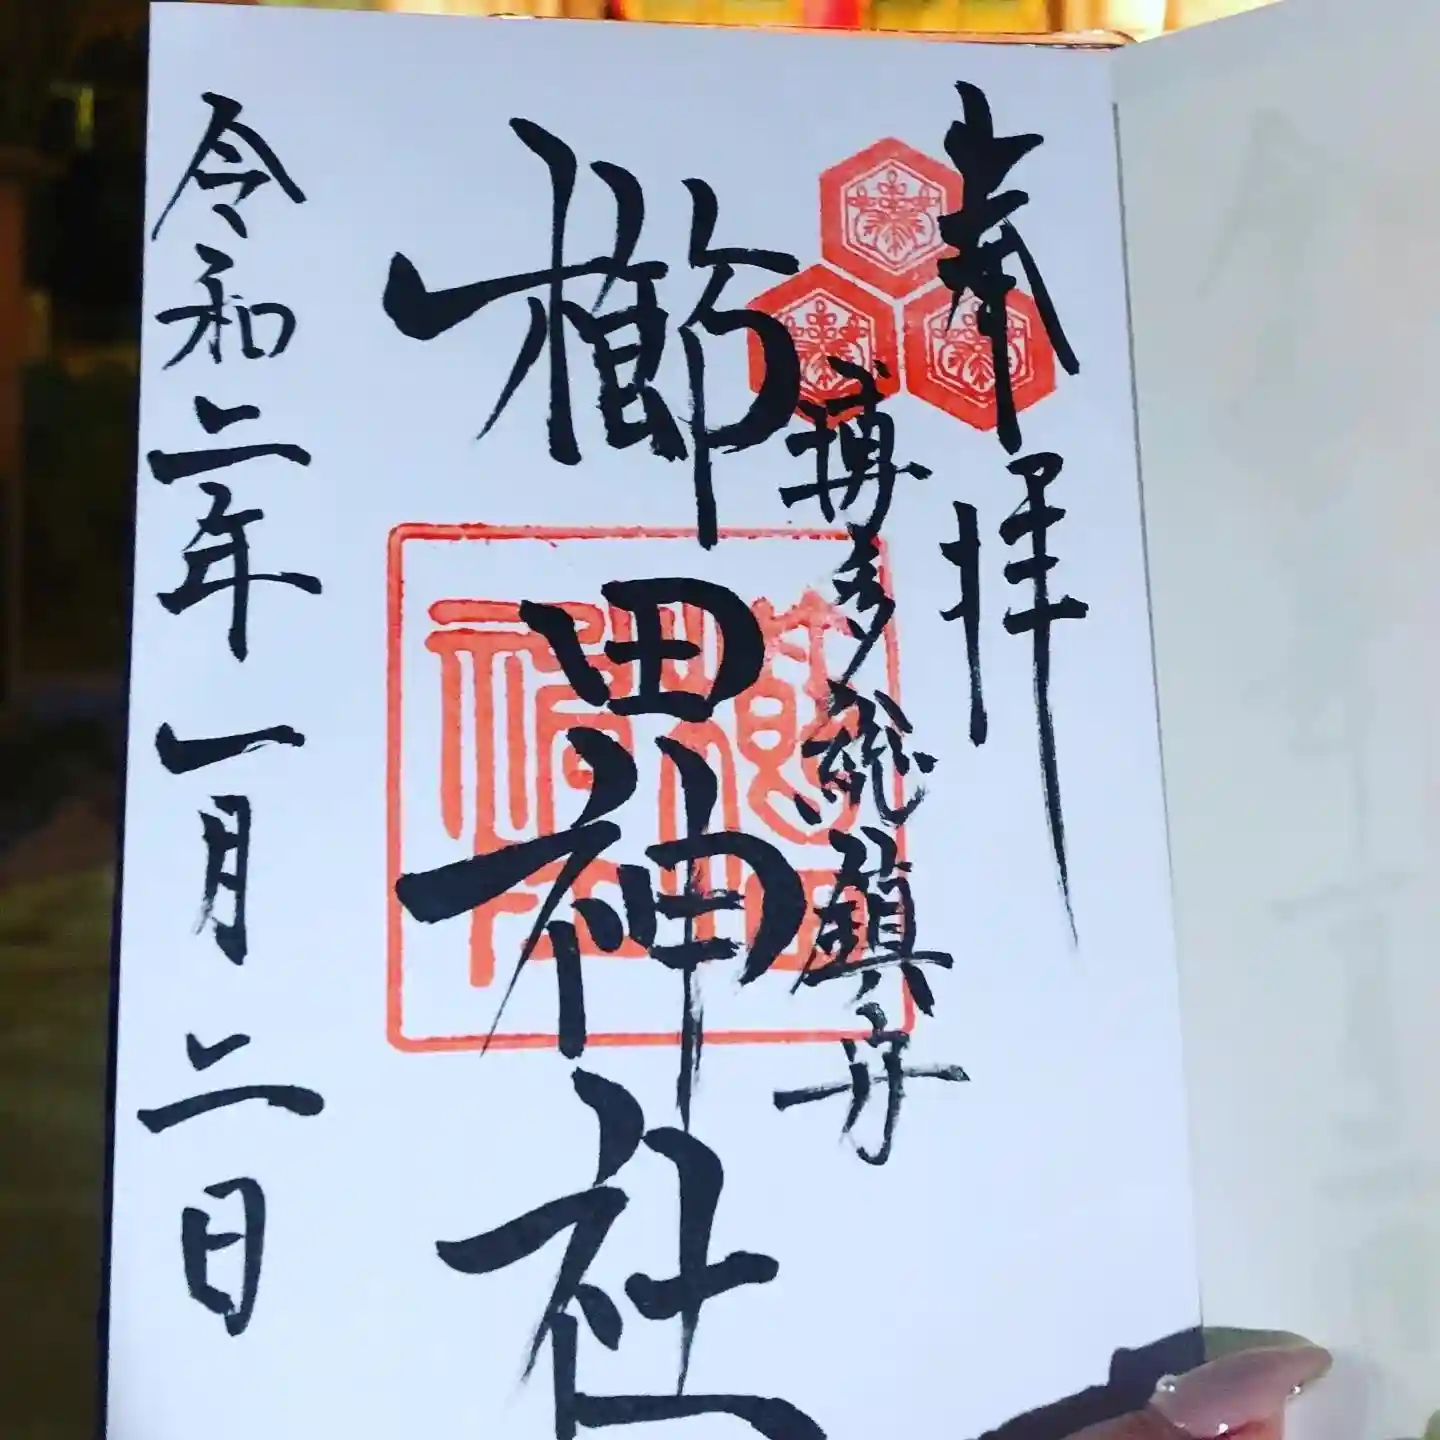 奉拝
博多総鎮守
櫛田神社
令和二年一月二日